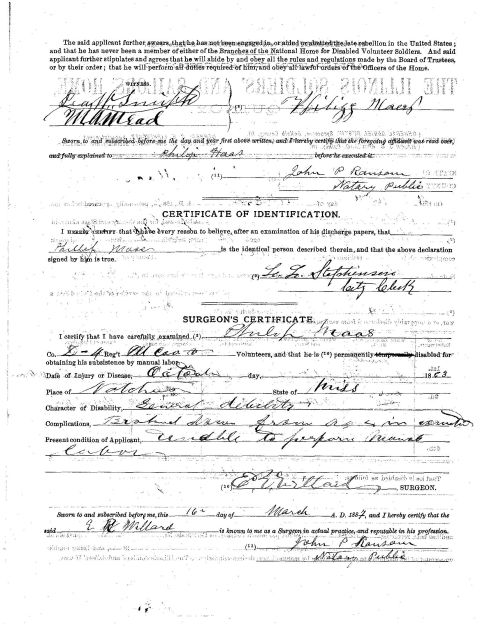 The said applicant further swears, that he has not been engaged in, or aided or abetted the late rebellion in the United States;
and that he has never been a member of either of the Branches of the National Home for Disabled Volunteer Soldiers. And said
applicant further stipulates and agrees that he will abide by and obey all the rules and regulations made by the Board of Trustees,
or by their order; that he will perform all duties required of him, and obey all lawful orders of the Officers of the Home.
WITNESS.
M. A. Mead
Sworn to and subscribed before me the day and year first above written; and I hereby certify that the foregoing affidavit was read over,
and fully explained to Philip Haas before he executed it.
John P Ransom
Notary Public
CERTIFICATE OF IDENTIFICATION.
I hereby certify that I have every reason to believe, after an examination of his discharge papers, that
Phillip Maas is the identical person described therein, and that the above declaration
signed by him is true.
Stephenson
City Clerk
SURGEON'S CERTIFICATE.
I certify that I have carefully examined Philip Maas
Co. Reg't Volunteers, and that he is permanently temporarily disabled for
obtaining his subsistence by manual labor.
Date of Injury or Disease, October day, 1863
Place of State of Miss
Character of Disability, General debility
Complications, Broken down from age
Present condition of Applicant, Unable to perform Manual
labor
Willard SURGEON.
Sworn to and subscribed before me, this 16 day of March A. D. 188 and I hereby certify that the
said E R Willard is known to me as a Surgeon in actual practice, and reputable in his profession.
John P Ransom
Notary Public